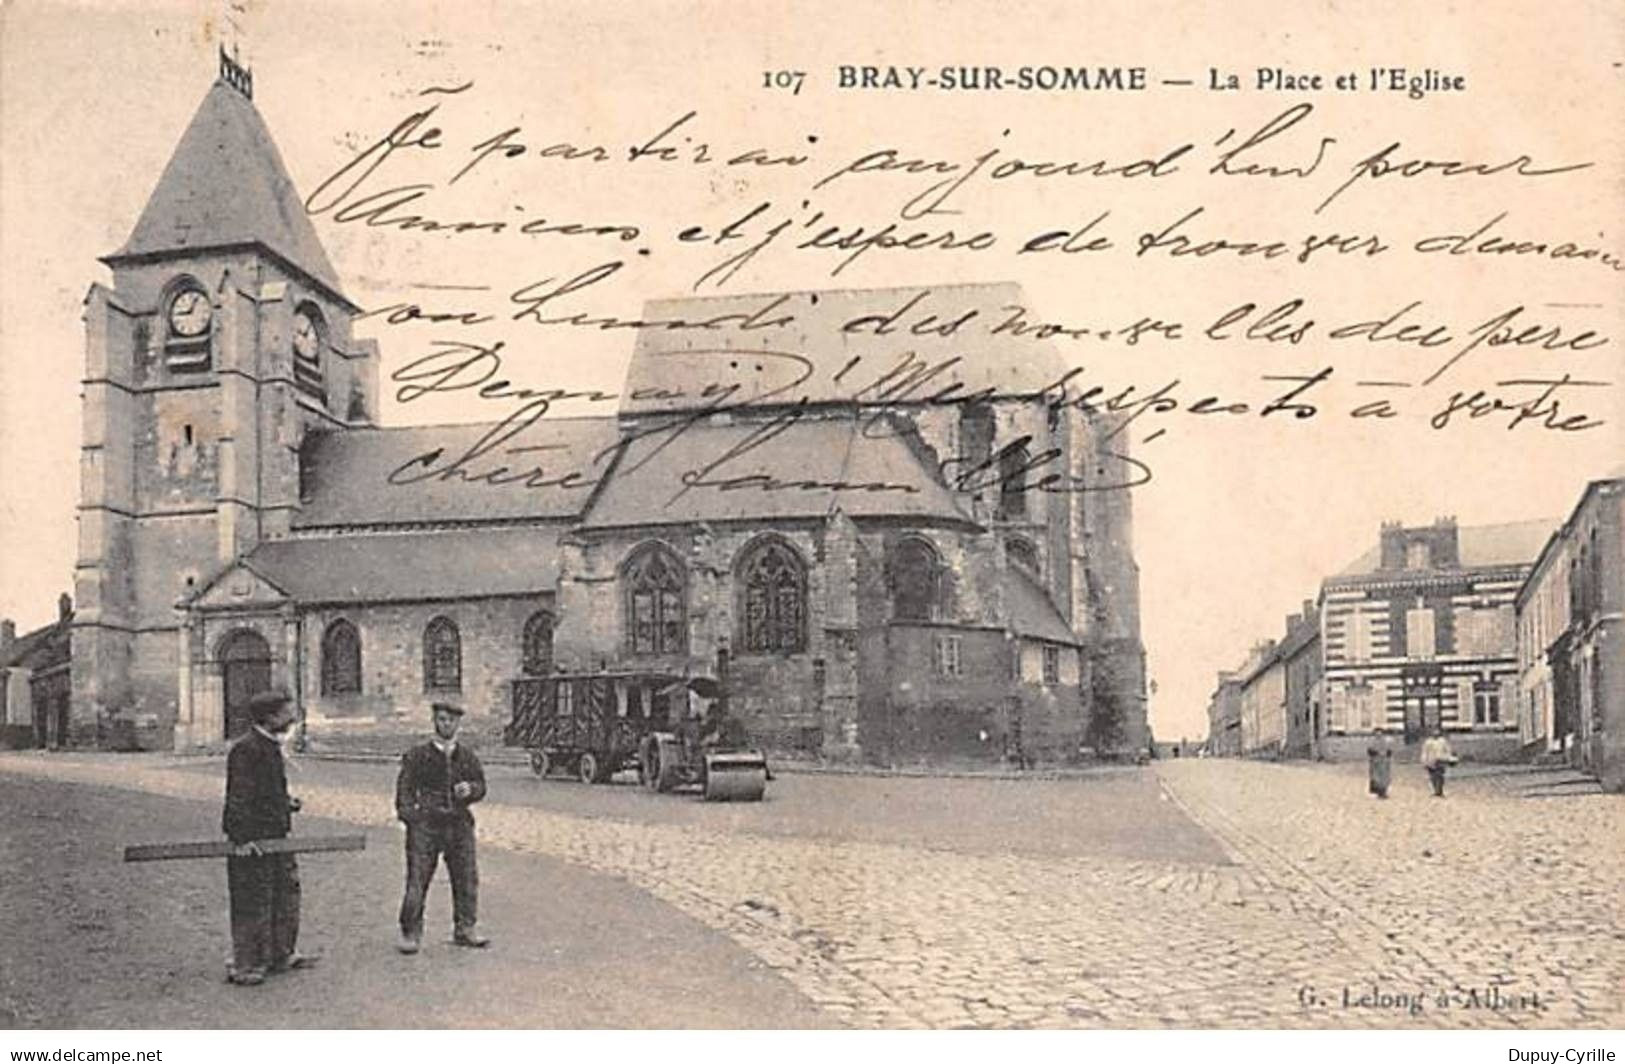 107 BRAY-SUR-SOMME — La Place et l'Eglise
Je partirai aujourd'hui pour
Amiens et j'espère de trouver demain
ou lundi des nouvelles du père
Demay. Mes respects à votre
chère famille
G. Lelong à Albert.
www.delcampe.net
Dupuy-Cyrille